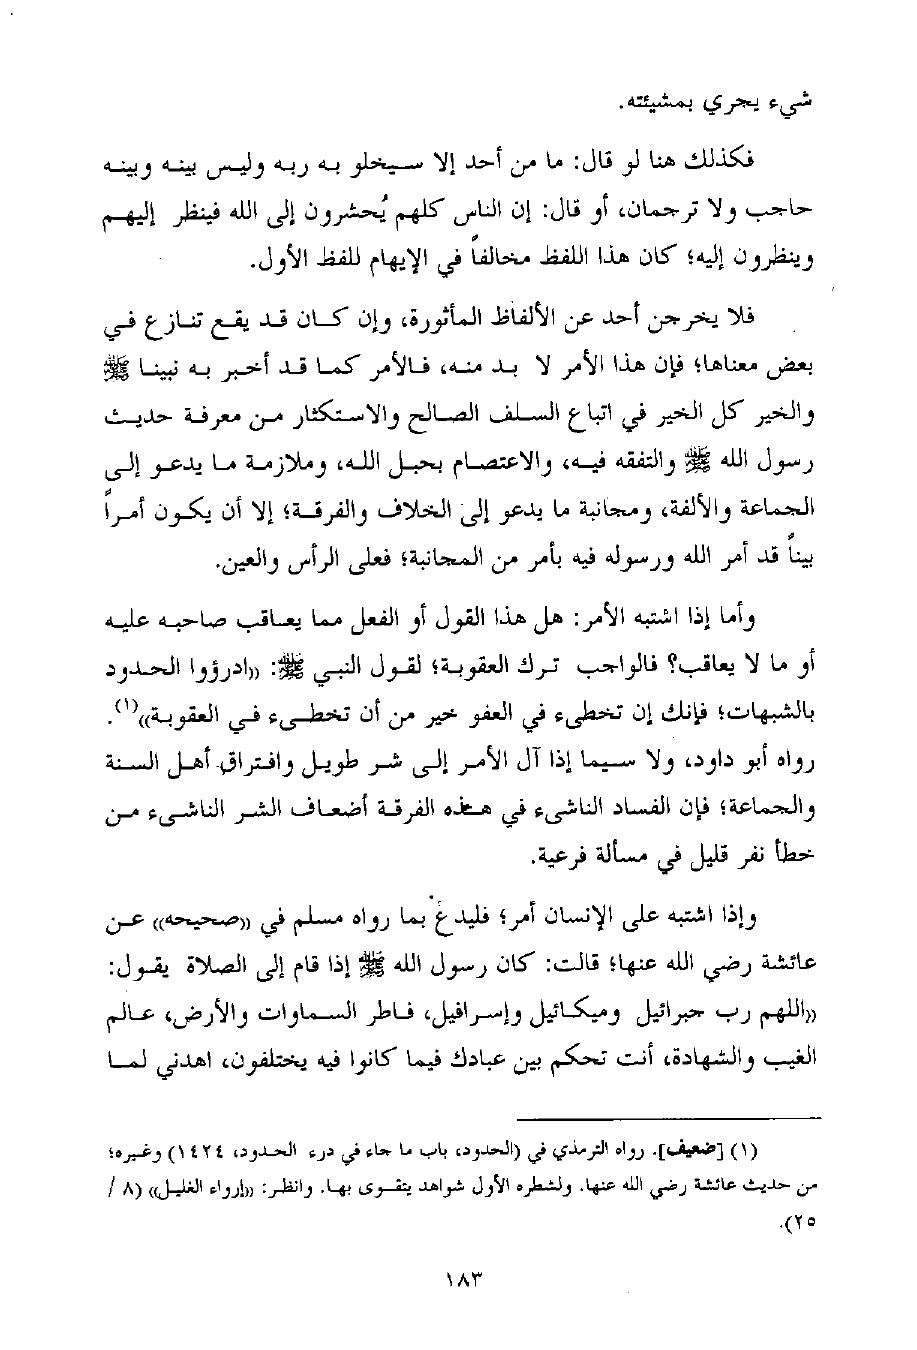 شيء يجري بمشيئته.
فكذلك هنا لو قال: ما من أحد إلا سيخلو به ربه وليس بينه وبينه
حاجب ولا ترجمان، أو قال: إن الناس كلهم يُحشرون إلى الله فينظر إليهم
وينظرون إليه؛ كان هذا اللفظ مخالفاً في الإيهام للفظ الأول.
فلا يخرجن أحد عن الألفاظ المأثورة، وإن كان قد يقع تنازع في
بعض معناها؛ فإن هذا الأمر لا بد منه، فالأمر كما قد أخبر به نبينا ﷺ
والخير كل الخير في اتباع السلف الصالح والاستكثار من معرفة حديث
رسول الله ﷺ والتفقه فيه، والاعتصام بحبل الله، وملازمة ما يدعو إلى
الجماعة والألفة، ومجانبة ما يدعو إلى الخلاف والفرقة؛ إلا أن يكون أمراً
بيناً قد أمر الله ورسوله فيه بأمر من المجانبة؛ فعلى الرأس والعين.
وأما إذا اشتبه الأمر: هل هذا القول أو الفعل مما يعاقب صاحبه عليه
أو ما لا يعاقب؟ فالواجب ترك العقوبة؛ لقول النبي ﷺ: ((ادرؤوا الحدود
بالشبهات؛ فإنك إن تخطىء في العفو خير من أن تخطىء في العقوبة))(١).
رواه أبو داود، ولا سيما إذا آل الأمر إلى شر طويل وافتراق أهل السنة
والجماعة؛ فإن الفساد الناشىء في هذه الفرقة أضعاف الشر الناشىء من
خطأ نفر قليل في مسألة فرعية.
وإذا اشتبه على الإنسان أمر؛ فليدعُ بما رواه مسلم في ((صحيحه)) عن
عائشة رضي الله عنها؛ قالت: كان رسول الله ﷺ إذا قام إلى الصلاة يقول:
((اللهم رب جبرائيل وميكائيل وإسرافيل، فاطر السماوات والأرض، عالم
الغيب والشهادة، أنت تحكم بين عبادك فيما كانوا فيه يختلفون، اهدني لما
(١) [ضعيف]. رواه الترمذي في (الحدود، باب ما جاء في درء الحدود، ١٤٢٤) وغيره؛
من حديث عائشة رضي الله عنها. ولشطره الأول شواهد يتقوى بها. وانظر: ((إرواء الغليل)) (٨ /
٢٥).
١٨٣